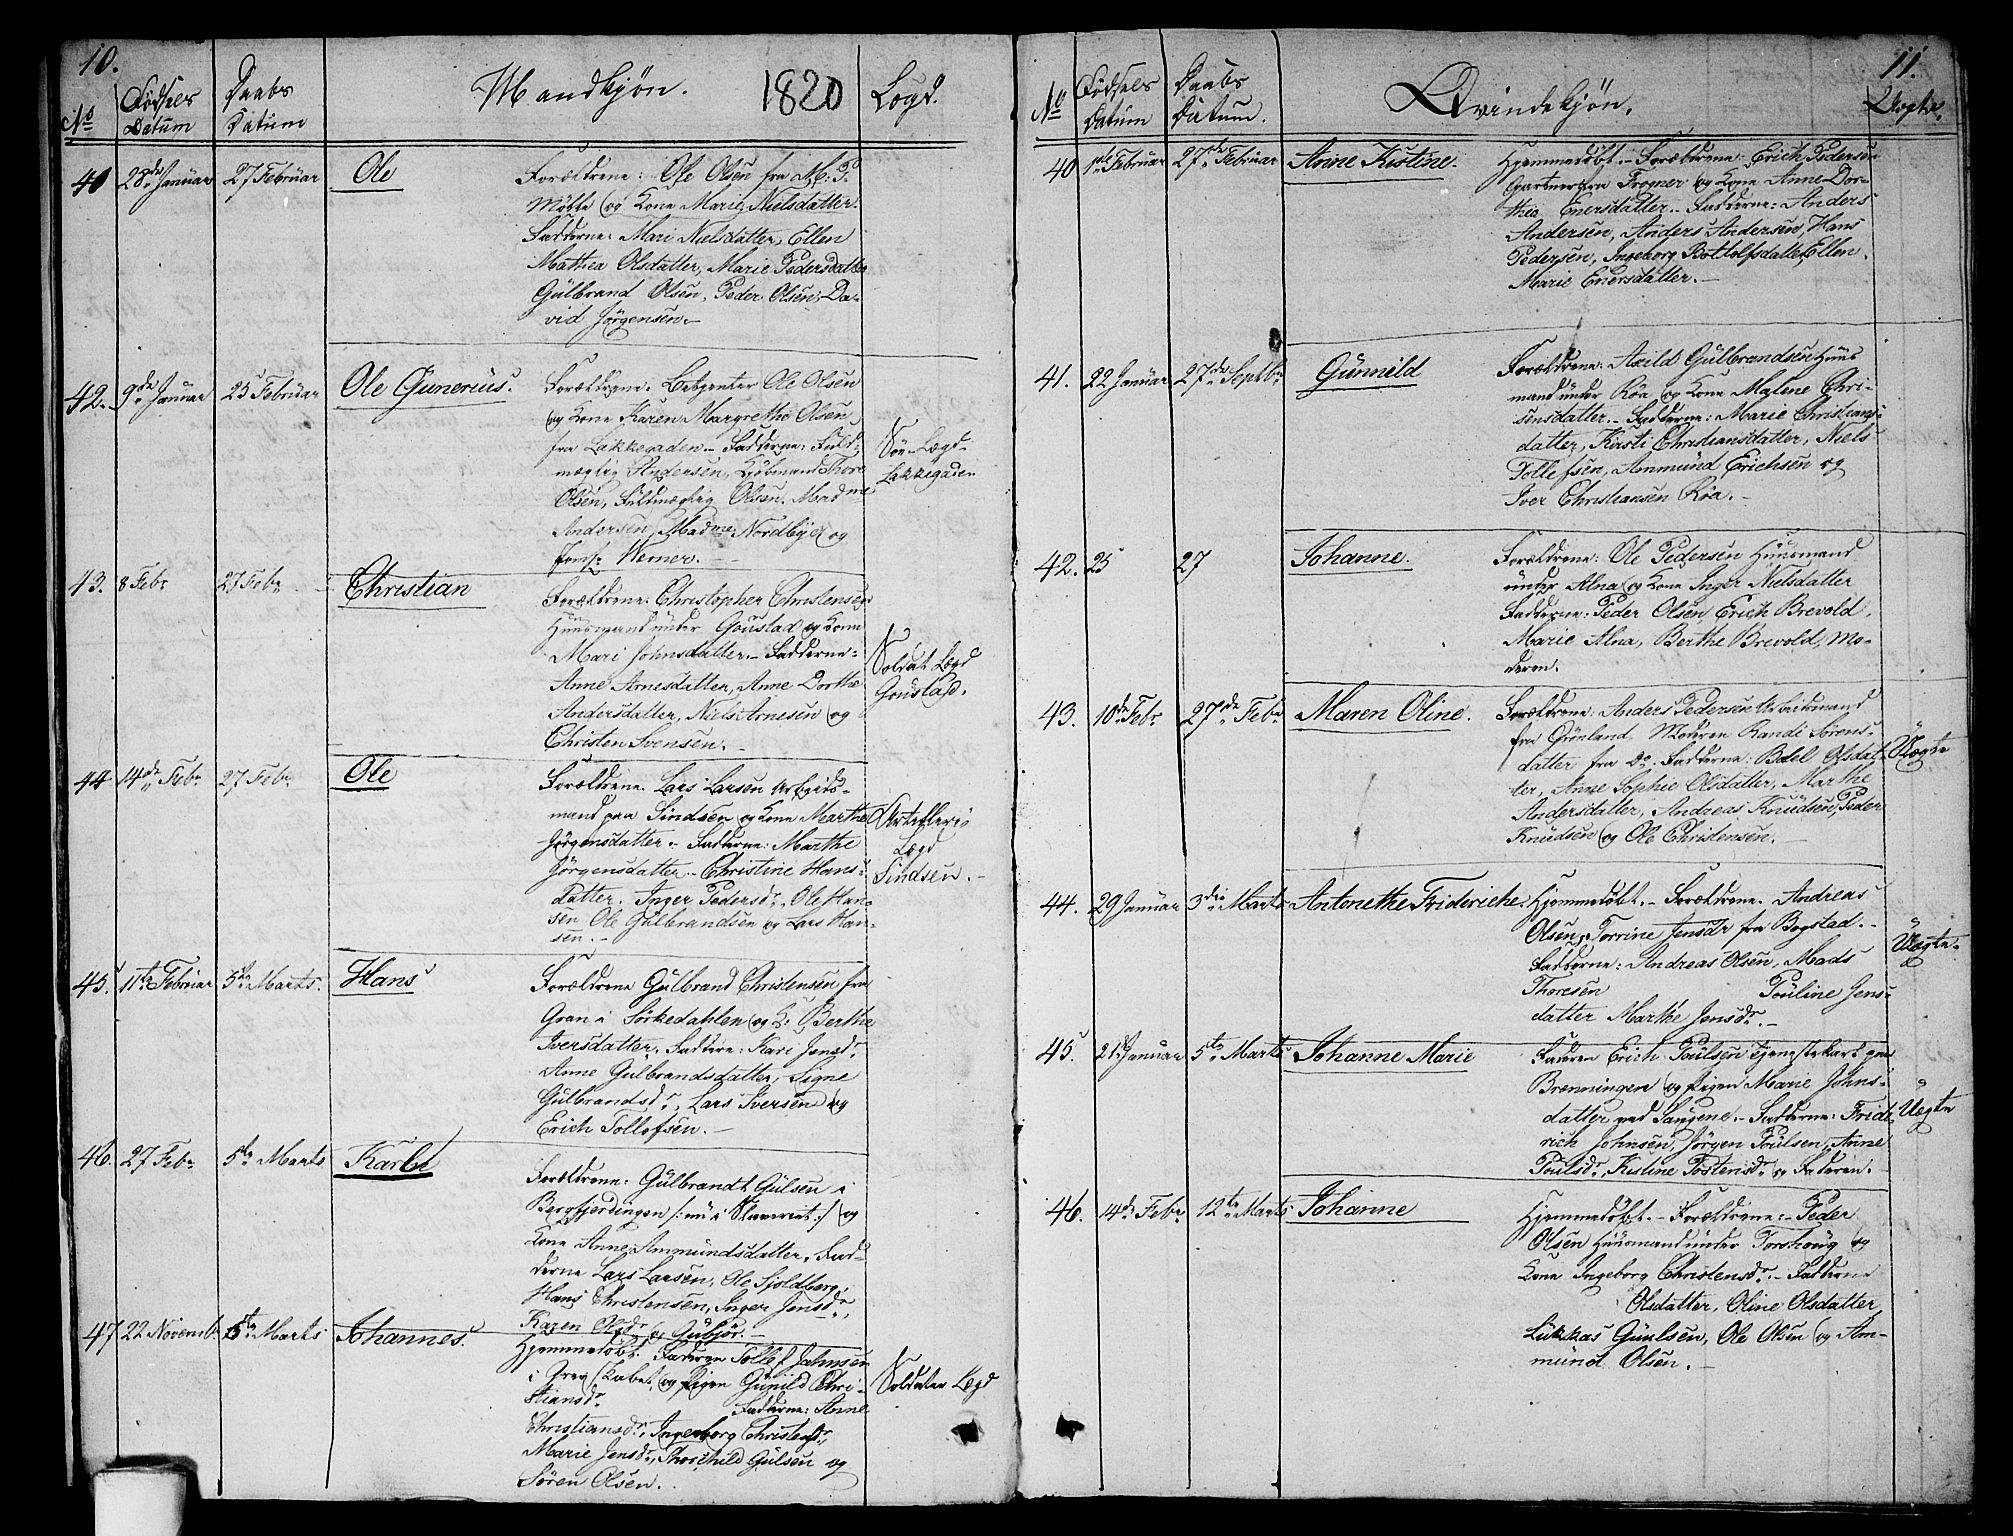 10.
No
Fødsels Datum
Daabs Datum
Mandkjøn. 1820
Lægd.
41 28de Januar 27 Februar Ole
Forældrene: Ole Olsen fra M. P.
Møtte og Kone Marie Nielsdatter.
Fadderne: Mari Nielsdatter, Ellen
Mathea Olsdatter, Marie Pedersdatter
Gülbrand Olsen, Peder Olsen, Da-
vid Jörgensen.-
42. 9de Januar 25 Februar Ole Gunerius.
Forældrene: Betjenter Ole Olsen
og Kone Karen Margrethe Olsen
fra Lakkegaden.- Fadderne: Fuld-
mægtig Andersen, Kjöbmand Thore
Olsen, Fuldmægtig Olsen. Madme
Andersen, Madme Nordbye og
Jomf: Werner.-
Söe-Lægd-
Lakkegaden
43. 8 Febr 27 Febr Christian
Forældrene: Christopher Christensen
Huusmand under Goustad og Kone
Mari Johnsdatter.- Fadderne-
Anne Arnesdatter, Anne Dorthe
Andersdatter, Niels Arnesen og
Christen Svensen.-
Soldat Lægd
Goustad.
44 14de Febr 27 Febr Ole
Forældrene Lars Larsen Arbeids-
mand paa Sindsen og Kone Marthe
Jörgensdatter.- Fadderne: Marthe
Jörgensdatter.- Christine Hans-
datter. Inger Pedersdr, Ole Han-
sen Ole Gülbrandsen og Lars Han-
sen.-
Artelleri-
Lægd
Sindsen.-
45. 11te Februar 5te Marts. Hans
Forældrene Gülbrand Christensen fra
Gran i Sörkedahlen og K. Berthe
Iversdatter. Faddere: Kari Jensdr.
Anne Gulbrandsdatter, Signe
Gülbrandsdr, Lars Iversen og
Erich Tollofsen.-
46. 27 Febr 5te Marts Karl
Forældrene: Gülbrandt Gülsen i
Bergfjerdingen /: nu i Slaveriet :/ og
Kone Anne Ammündsdatter, Fad-
derne Lars Larsen, Ole Sjoldberg,
Hans Christensen, Inger Jensdr,
Karen Olsdr og Gubjör.-
47 22 Novemb. 5te Marts Johannes.
Hjemmedöbt. Faderen Tollef Johnsen
i Greg Skabet og Pigen Günild Chri-
stiansdr Fadderne: Anne
Christiansdr, Ingeborg Christensdr,
Marie Jensdr, Thorchild Gülsen og
Sören Olsen.
Soldater Lægd
11.
No
Fødsels Datum
Daabs Datum.
Qvindekjön.
Uægte.
40 1ste Februar 27de Februar Anne Kistine.
Hjemmedöbt.- Forældrene: Erich Pedersen
Gartner fra Frogner og Kone Anne Dor-
thea Enersdatter.- Fadderne: Anders
Andersen, Anders Andersen, Hans
Pedersen, Ingeborg Bottolfsdatter, Ellen
Marie Enersdatter.-
41. 22 Januar 27de Septbr Günnild
Forældrene: Axild Gülbrandsen Huus
mand under Röa og Kone Malene Chri-
sensdatter.- Fadderne: Marie Christians-
datter, Kirsti Christiansdatter, Niels
Tollefsen, Ammünd Erichsen og
Iver Christiansen Röa.-
42. 25 27 Johanne.
Forældrene: Ole Pedersen Huusmand
ünder Alna og Kone Inger Nielsdatter
Fadderne: Peder Olsen Erich Brevold,
Marie Alna, Berthe Brevold, Mo-
deren.
43. 10de Febr 27de Febr Maren Oline.
Forældrene: Anders Pedersen Arbeidsmand
fra Grönland Moderen Randi Sörens-
datter fra Do. Fadderne: Bodel Olsdat-
ter, Anne Sophie Olsdatter, Marthe
Andersdatter, Andreas Knüdsen, Peder
Knüdsen og Ole Christensen.
Uægte
44. 29 Januar 3die Marts Antonethe Frideriche
Hjemmedöbt.- Forældrene. Andreas
Olsen, Torrine Jensdr fra Bogstad.-
Fadderne: Andreas Olsen, Mads
Thoresen Pouline Jens-
datter Marthe Jensdr.-
Uægte.
45. 21de Januar 5te Marts Johanne Marie
Faderen Erich Poulsen Tjenestekarl paa
Brenningen og Pigen Marie Johns-
datter ved Saugene.- Fadderne: Frid-
rich Johnsen, Jörgen Poulsen, Anne
Poulsdr, Kistine Tostensdr og Faderen.
Uægte
46. 14de Febr 12te Marts Johanne
Hjemmedöbt.- Forældrene:- Peder
Olsen Huusmand under Torshoug og
Kone Ingeborg Christensdr.- Fadderne
Olsdatter, Oline Olsdatter
Lükkas Guulsen, Ole Olsen og Am-
münd Olsen.-